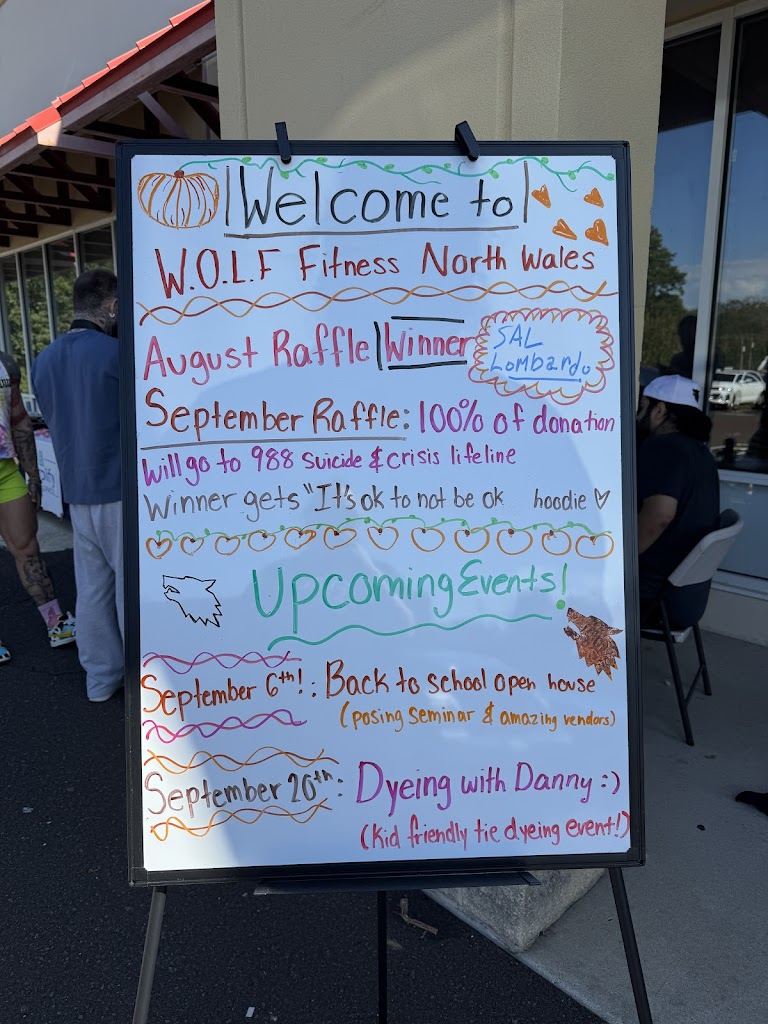 Welcome to
W.O.L.F Fitness North Wales
August Raffle Winner SAL Lombardo
September Raffle: 100% of donation
will go to 988 suicide & crisis lifeline
Winner gets "It's ok to not be ok hoodie
Upcoming Events!
September 6th!: Back to school open house
(posing seminar & amazing vendors)
September 20th: Dyeing with Danny :)
(kid friendly tie dyeing event!)